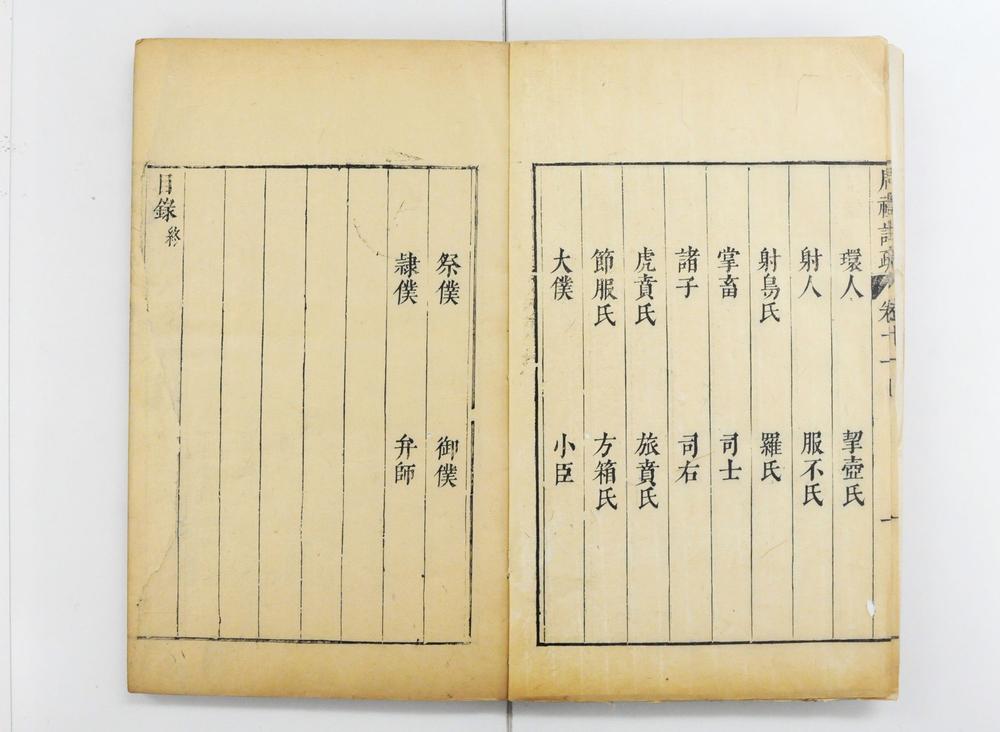 周禮註疏 卷十一 一
環人 挈壺氏
射人 服不氏
射鳥氏 羅氏
掌畜 司士
諸子 司右
虎賁氏 旅賁氏
節服氏 方箱氏
大僕 小臣
祭僕 御僕
隷僕 弁師
目錄終